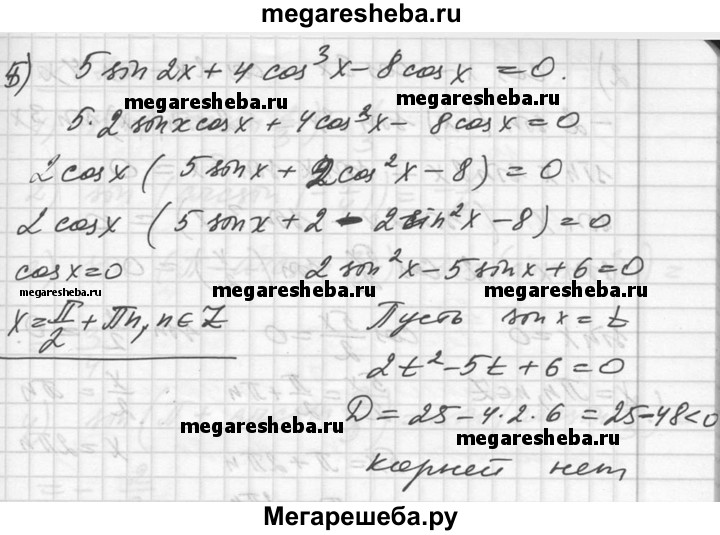 megaresheba.ru
5) 5 sin 2x + 4 cos³x - 8 cos x = 0.
megaresheba.ru megaresheba.ru
5·2 sin x cos x + 4 cos³x - 8 cos x = 0
2 cos x ( 5 sin x + 2 cos²x - 8 ) = 0
2 cos x ( 5 sin x + 2 - 2 sin²x - 8 ) = 0
cos x = 0 2 sin²x - 5 sin x + 6 = 0
megaresheba.ru megaresheba.ru megaresheba.ru
x = π/2 + πn, n ∈ Z Пусть sin x = t
2t² - 5t + 6 = 0
D = 25 - 4·2·6 = 25 - 48 < 0
megaresheba.ru megaresheba.ru
корней нет
Мегарешеба.ру